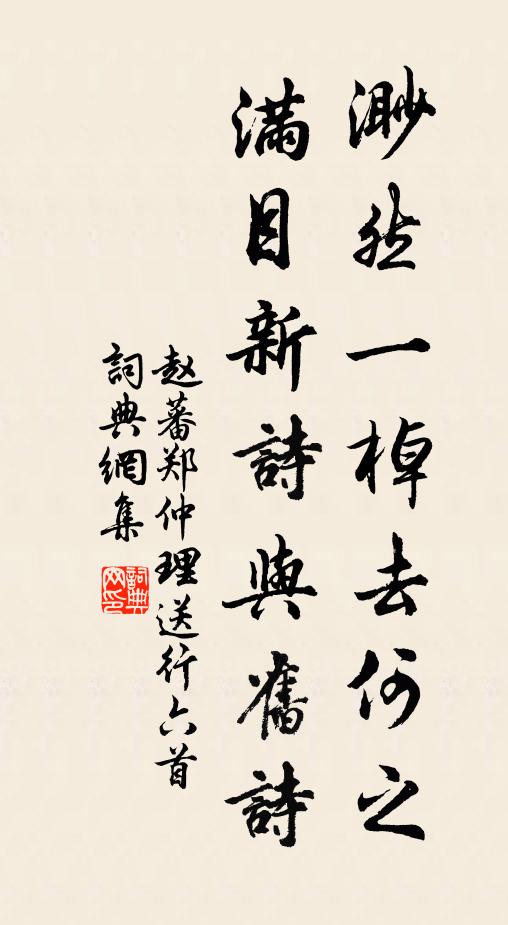 渺然一棹去何之
滿目新詩與舊詩
赵蕃郑仲理送行六首
詞典網集
詞典网印